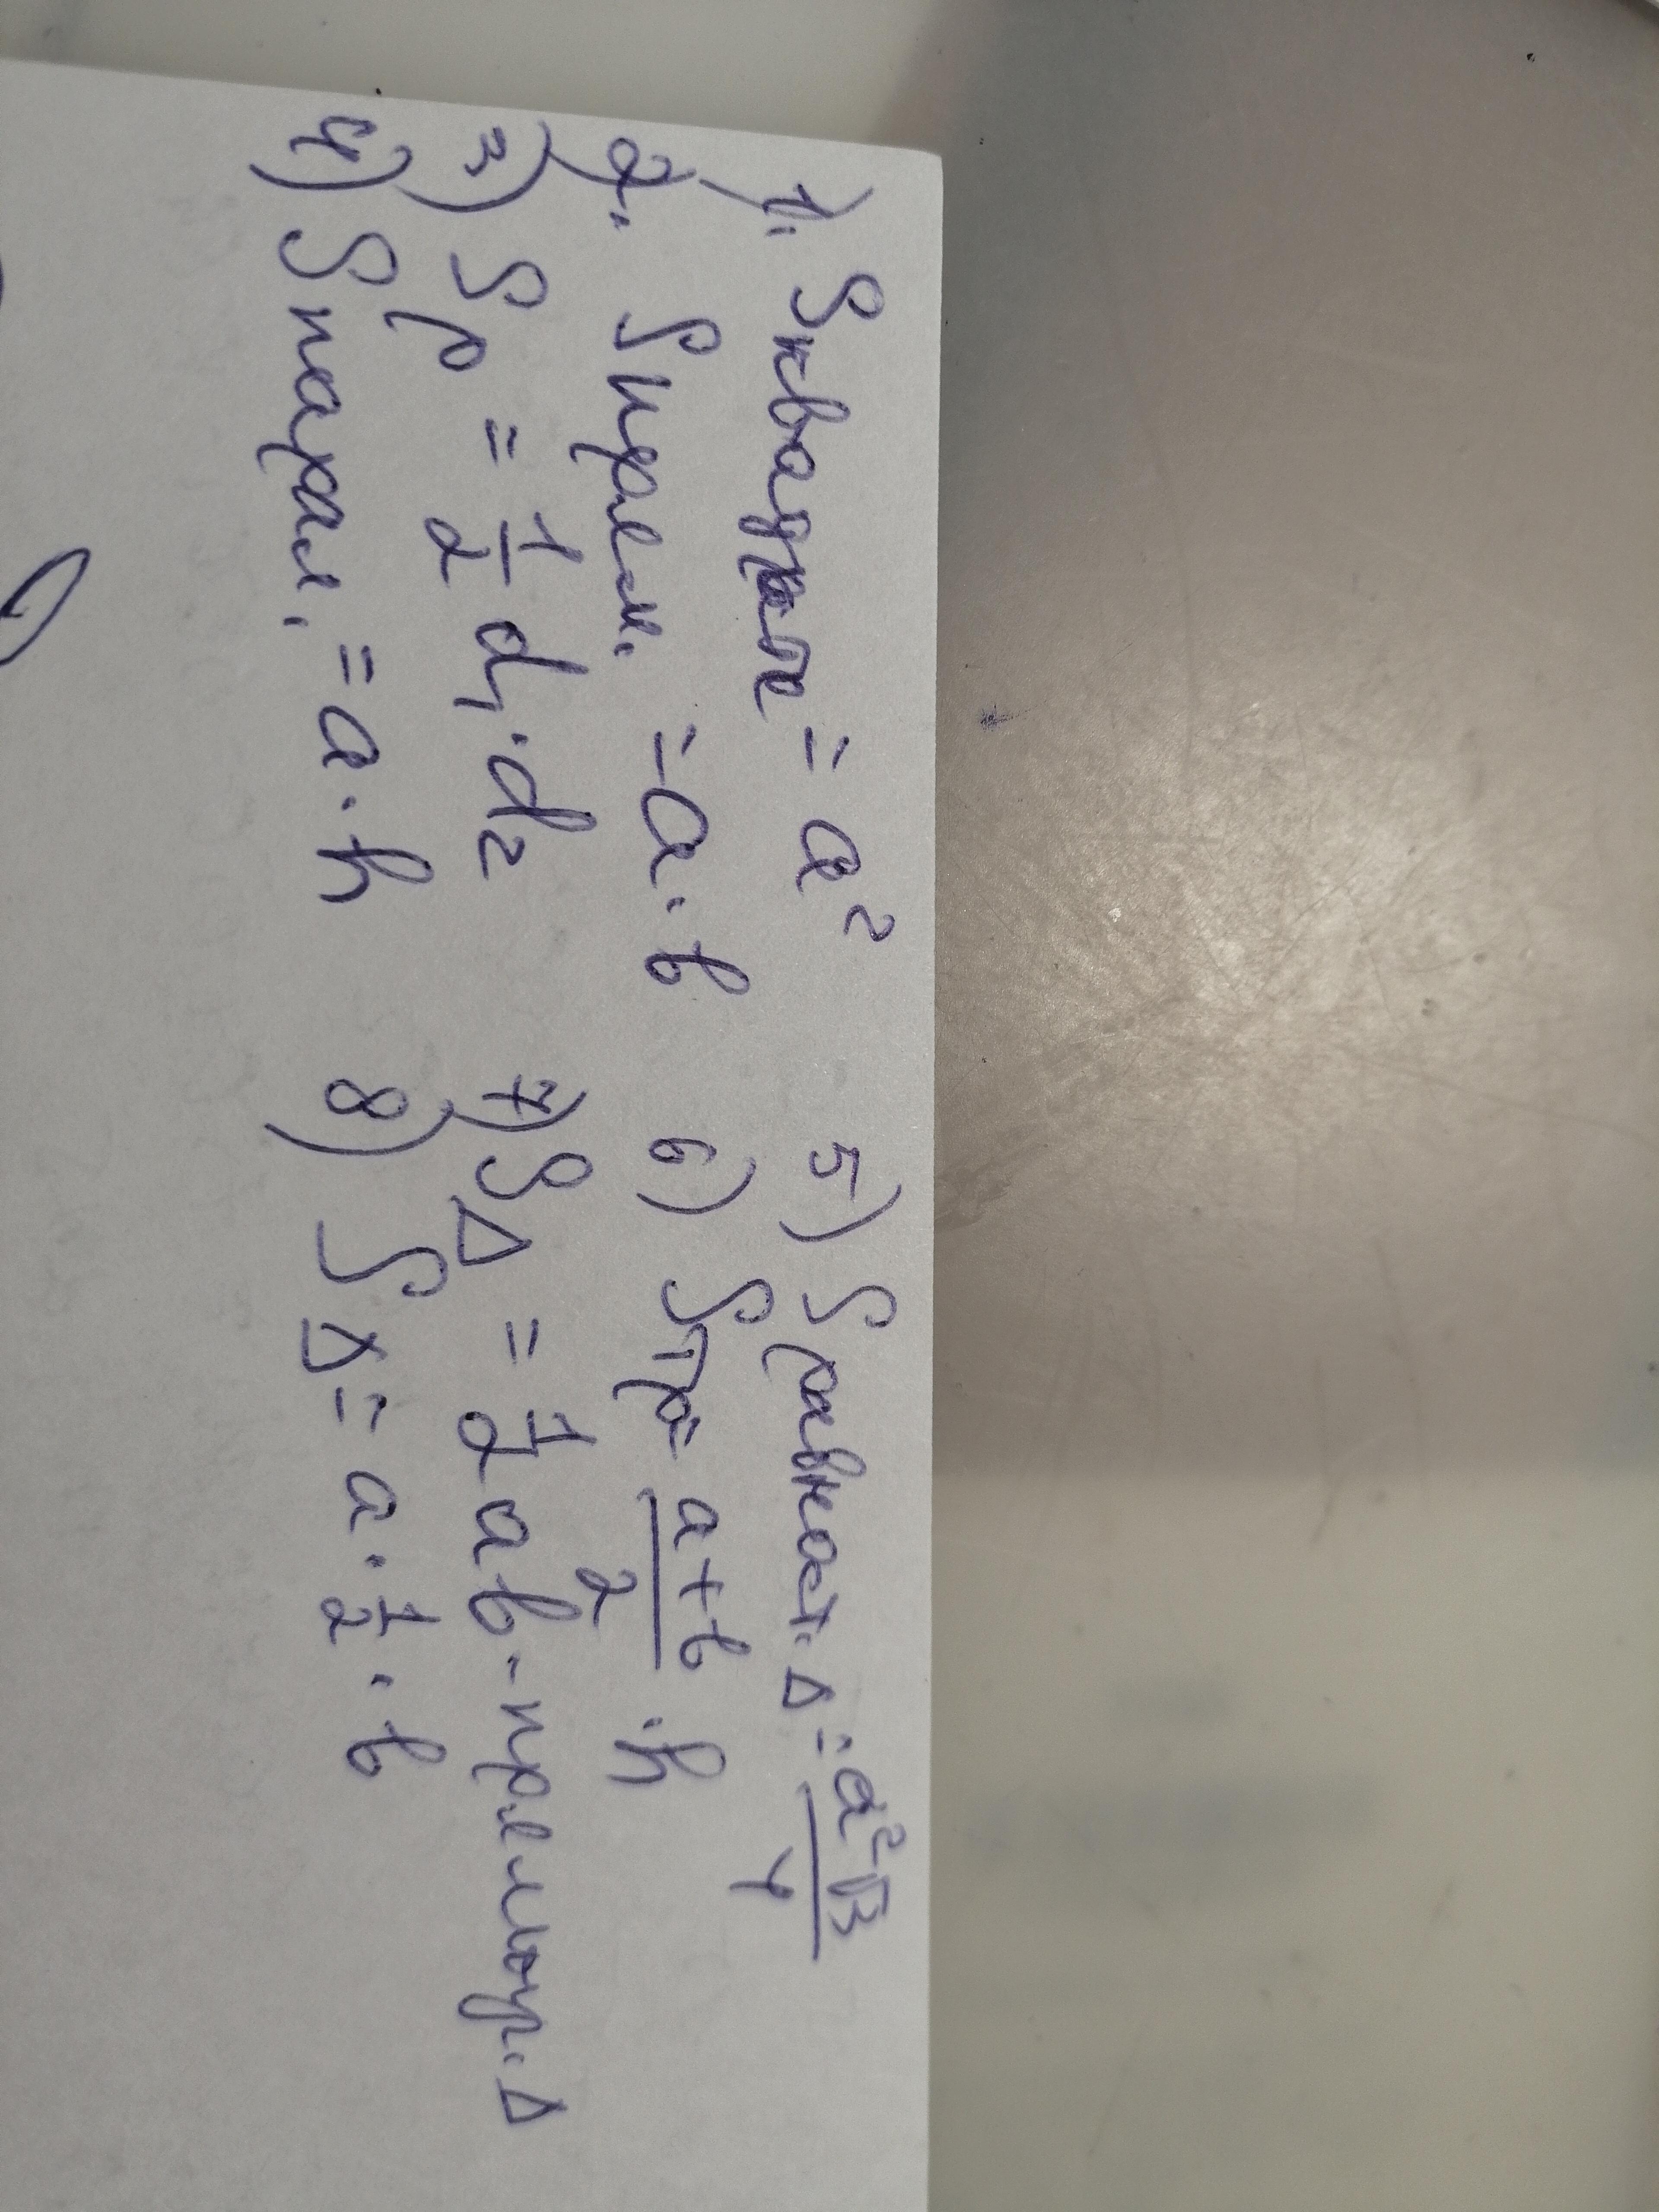 1). Sквадрат = a²
2). Sпрям. = a · b
3) Sр = 1/2 d₁ · d₂
4) Sпарал. = a · h
5) Sравност. Δ = a²√3/4
6) Sтр = a+b/2 · h
7) SΔ = 1/2 ab - прямоуг. Δ
8) SΔ = a · 1/2 · b